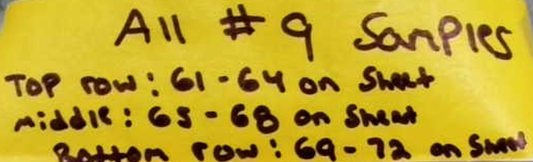 All # 9 Samples
Top row: 61-64 on Sheet
Middle: 65-68 on Sheet
Bottom row: 69-72 on Sheet